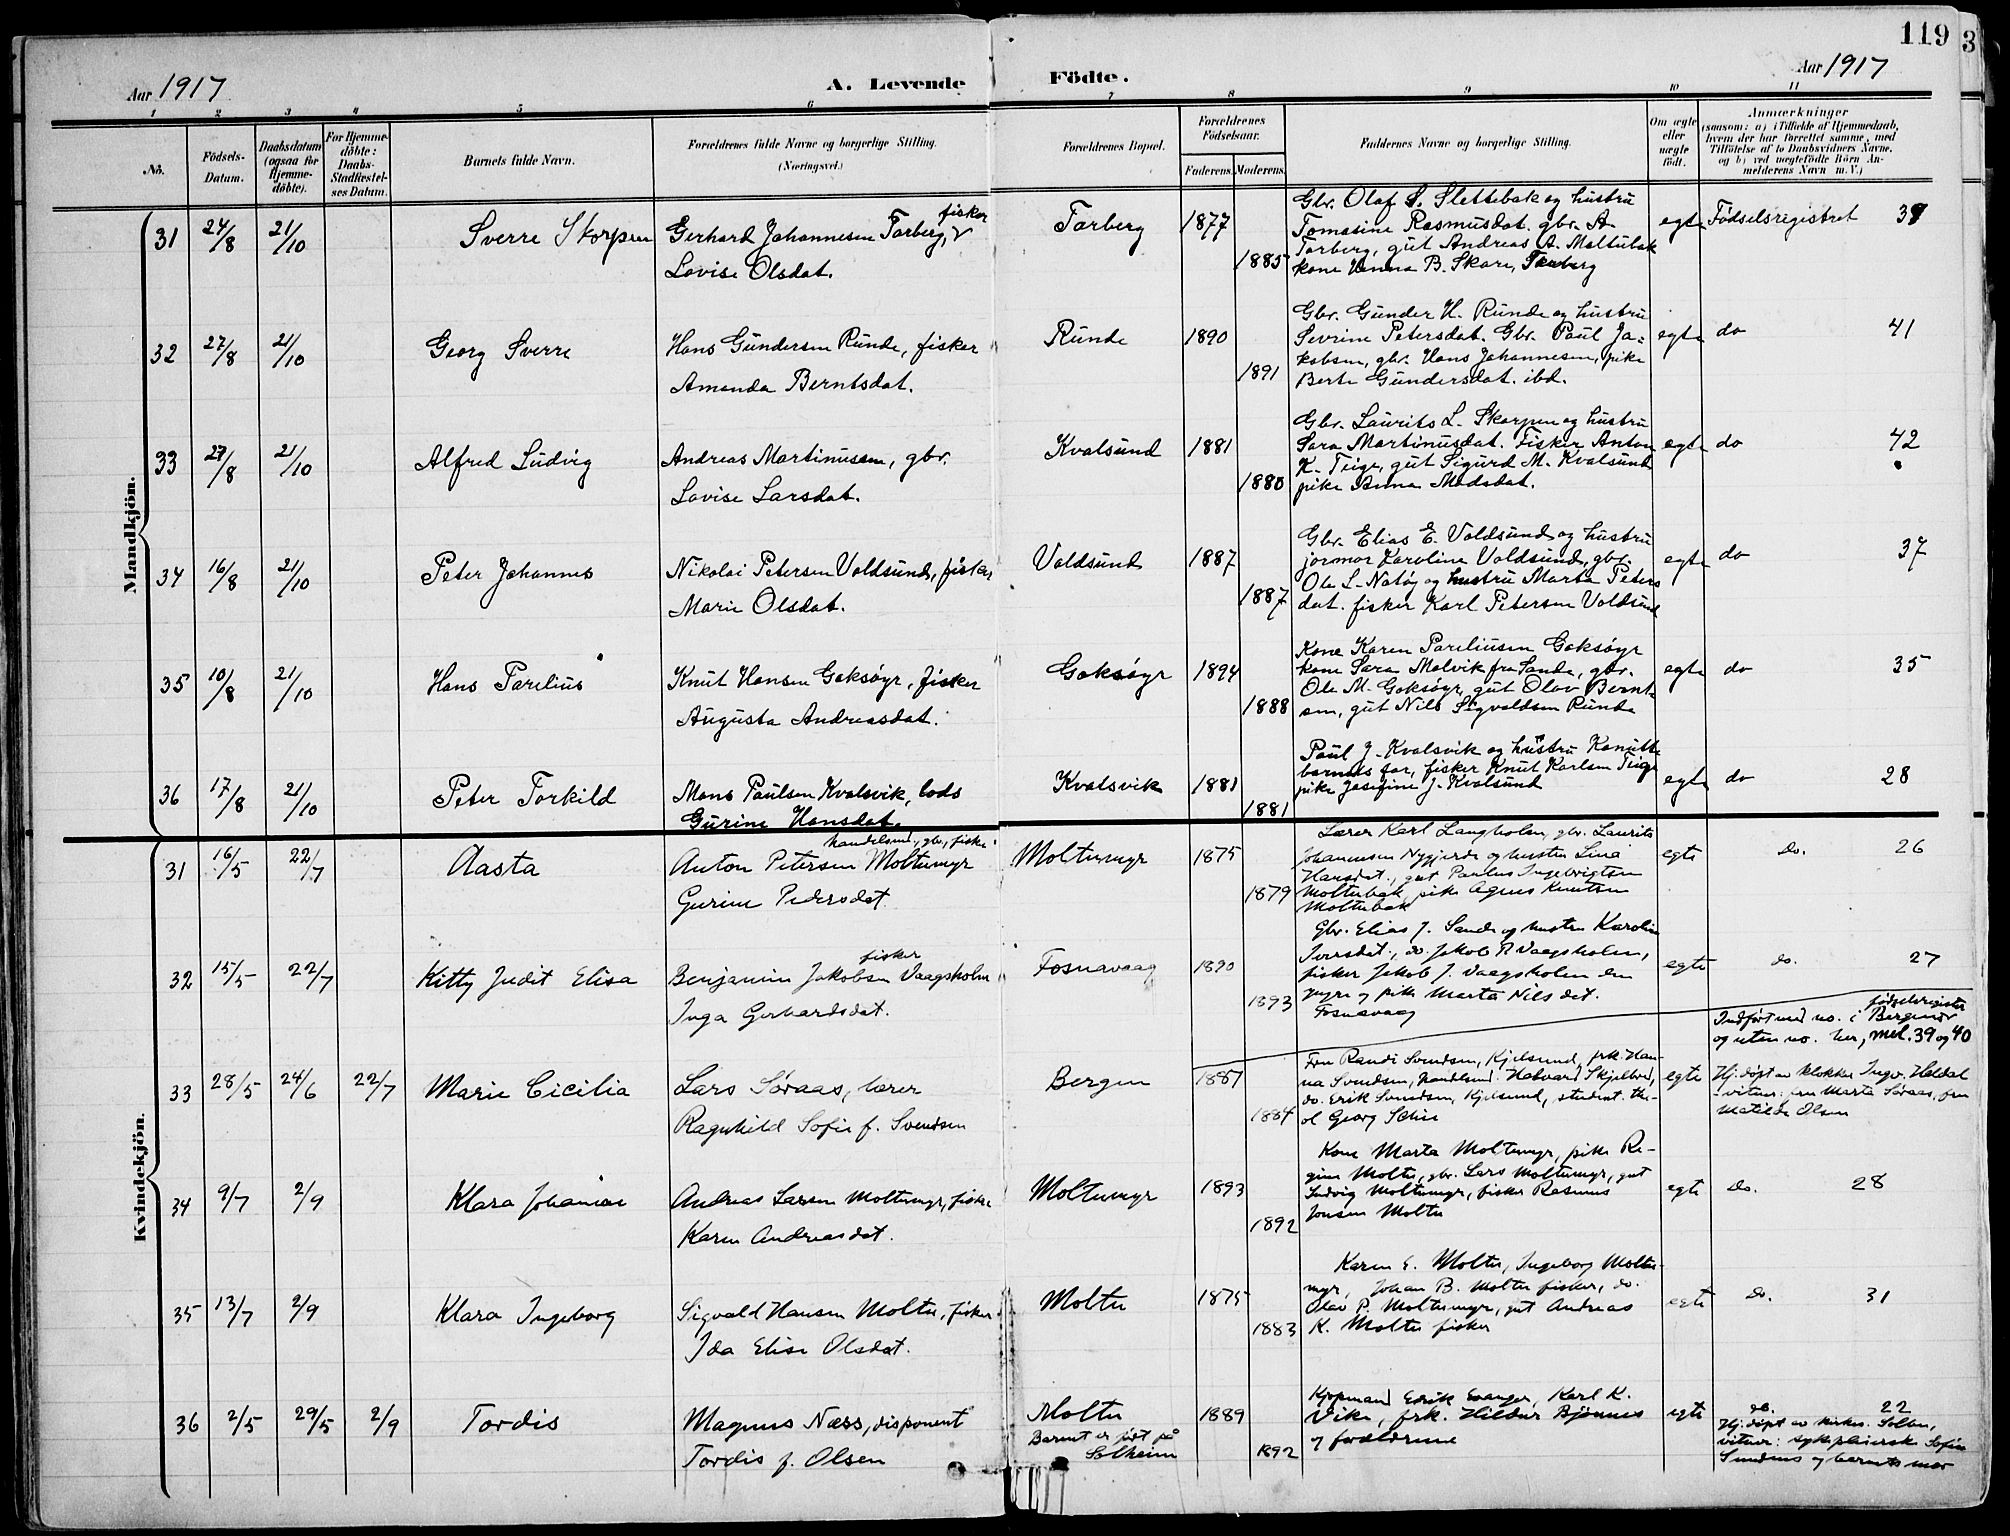 119
3
Aar 1917
A. Levende
Födte.
Aar 1917
1 2 3 4 5 6 7 8 9 10 11
No.
Födsels-
Datum.
Daabsdatum
(ogsaa for
Hjemme-
döbte).
For Hjemme-
döbte:
Daabs-
Stadfæstel-
ses Datum.
Barnets fulde Navn.
Forældrenes fulde Navne og borgerlige Stilling.
(Næringsvei.)
Forældrenes Bopæl.
Forældrenes
Födselsaar.
Faderens. Moderens.
Faddernes Navne og borgerlige Stilling.
Om ægte
eller
uægte
födt.
Anmærkninger
(saasom: a) i Tilfælde af Hjemmedaab,
hvem der har forrettet samme, med
Tilföielse af to Daabsvidners Navne,
og b) ved uægtefödte Börn An-
melderens Navn m. V.)
Mandkjön.
31 24/8 21/10 Sverre Skorpen
fisker
Gerhard Johannesen Tarberg,
Lovise Olsdat.
Tarberg 1877
1885
Gbr. Olaf S. Slettebak og hustru
Tomasine Rasmusdat. gbr. A.
Tarberg, gut Andreas A. Moltubak
kone Hanna B. Skare, Tarberg
egte Födselsregistret 39
32 27/8 21/10 Georg Sverre
Hans Gundersen Runde, fisker
Amanda Berntsdat.
Runde 1890
1891
Gbr. Gunder H. Runde og hustru
Sevrine Petersdat. Gbr. Paul Ja-
kobsen, gbr. Hans Johannesen, pike
Berte Gundersdat. ibd.
egte do 41
33 27/8 21/10 Alfred Ludvig
Andreas Martinussen, gbr.
Lovise Larsdat.
Kvalsund 1881
1880
Gbr. Laurits L. Skorpen og hustru
Sara Martinusdat. Fisker Anton
K. Teige, gut Sigurd M. Kvalsund
pike Anna Madsdat.
egte do 42
34 16/8 21/10 Peter Johannes
Nikolai Petersen Voldsund, fisker
Marie Olsdat.
Voldsund 1887
1887
Gbr. Elias E. Voldsund og hustru
jormor Karoline Voldsund, gbr.
Ole L. Natøy og hustru Marta Peters
dat. fisker Karl Petersen Voldsund
egte do 37
35 10/8 21/10 Hans Parelius
Knut Hansen Goksöyr, fisker
Augusta Andreasdat.
Goksöyr 1894
1888
Kone Karen Pareliusen Goksöyr
kone Sara Molvik fra Sande, gbr.
Ole M. Goksöyr, gut Olav Bernt-
sen, gut Nils Sigvaldsen Runde
egte do 35
36 17/8 21/10 Peter Torkild
Mons Paulsen Kvalsvik, lods
Gurine Hansdat.
Kvalsvik 1881
1881
Paul J. Kvalsvik og hustru Kanutte
barnets far, fisker Knut Karlsen Teige
pike Josefine J. Kvalsund
egte do 28
Kvindekjön.
31 16/5 22/7 Aasta
handelsmd., gbr., fisker
Anton Petersen Moltumyr
Gurine Pedersdat.
Moltumyr 1875
1879
Lærer Karl Langholm, gbr. Laurits
Johannesen Nygjerde og hustru Lina
Hansdat., gut Paulus Ingebrigtsen
Moltubak, pike Agnes Knutsen
Moltubak
egte Do. 26
32 15/5 22/7 Kitty Judit Elisa
fisker
Benjamin Jakobsen Vaagsholm
Inga Gerhardsdat.
Fosnavaag 1890
1893
Gbr. Elias J. Sande og hustru Karoline
Iversdat., do. Jakob P. Vaagsholm,
fisker Jakob J. Vaagsholm den
yngre og pike Marta Nilsdat.
Fosnavaag
egte do. 27
fødselsregister
Indført med no. i Bergen
og uten no. her, mel. 39 og 40
33 28/5 24/6 22/7 Marie Cicilia
Lars Søraas, lærer
Ragnhild Sofie f. Svendsen
Bergen 1887
1884
Fru Randi Svendsen, Kjelsund, frk. Han-
na Svendsen, handlsmd. Halvard Skjelbred,
do. Erik Svendsen, Kjelsund, student. the-
ol Georg
egte Hj. døpt av klokker Ingv. Heldal
- vitner: fru Marta Søraas, fru
Matilde Olsen
34 9/7 2/9 Klara Johanne
Andreas Larsen Moltumyr, fisker
Karen Andreasdat.
Moltumyr 1893
1892
Kone Marta Moltumyr, pike Re-
gine Moltu, gbr. Lars Moltumyr, gut
Ludvig Moltumyr, fisker Rasmus
Jonsen Moltu
egte Do. 28
35 13/7 2/9 Klara Ingeborg
Sigvald Hansen Moltu, fisker
Ida Elise Olsdat.
Moltu 1875
1883
Karen E. Moltu, Ingeborg Moltu-
myr, Johan B. Moltu fisker, do.
Olav P. Moltumyr, gut Andreas
K. Moltu fisker
egte Do. 31
36 2/5 29/5 2/9 Tordis
Magnus Næss, disponent
Tordis f. Olsen
Moltu
Barnet er født på
Solheim
1889
1892
Kjøpmand Edrik Evanger, Karl K.
Vike, frk. Hildur Bjønnes
og forældrene
egte do. 22
Hj. døpt av kirkes. Solbu,
vitner: sykepleierske Sofie
og barnets mor